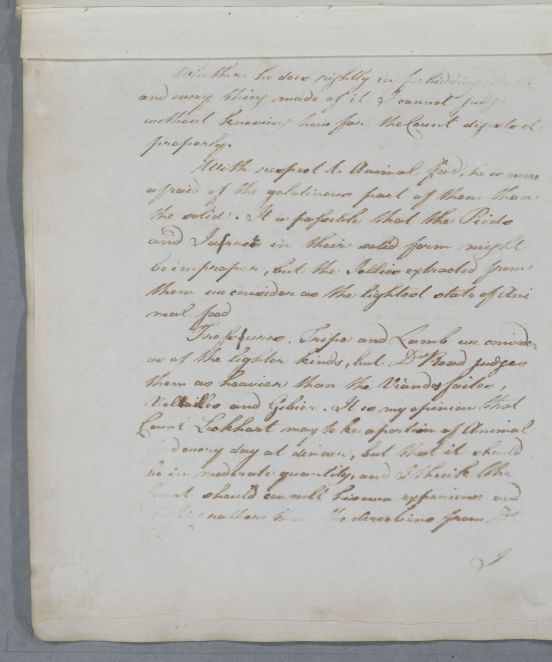 Whether he does rightly in forbidding Milk
and every thing made of it I cannot judge
without knowing how far the Count digests it
properly.
With respect to Animal food, he is more
afraid of the gelatinous part of them than
the solid. It is possible that the Pieds
and in their solid form might
be improper, but the Jellies extracted from
them we consider as the lightest state of Ani
mal food
Tripe and Lamb we consider
as of the lighter kinds, but Dr Read judges
them as heavier than the Viandes faites,
Volailles and Gibier. It is my opinion that
Count Lockhart may take a portion of Animal
food every day at dinner, but that it should
be in moderate quantity, and I think the
Count should consult his own experience and
rather than the directions from
I